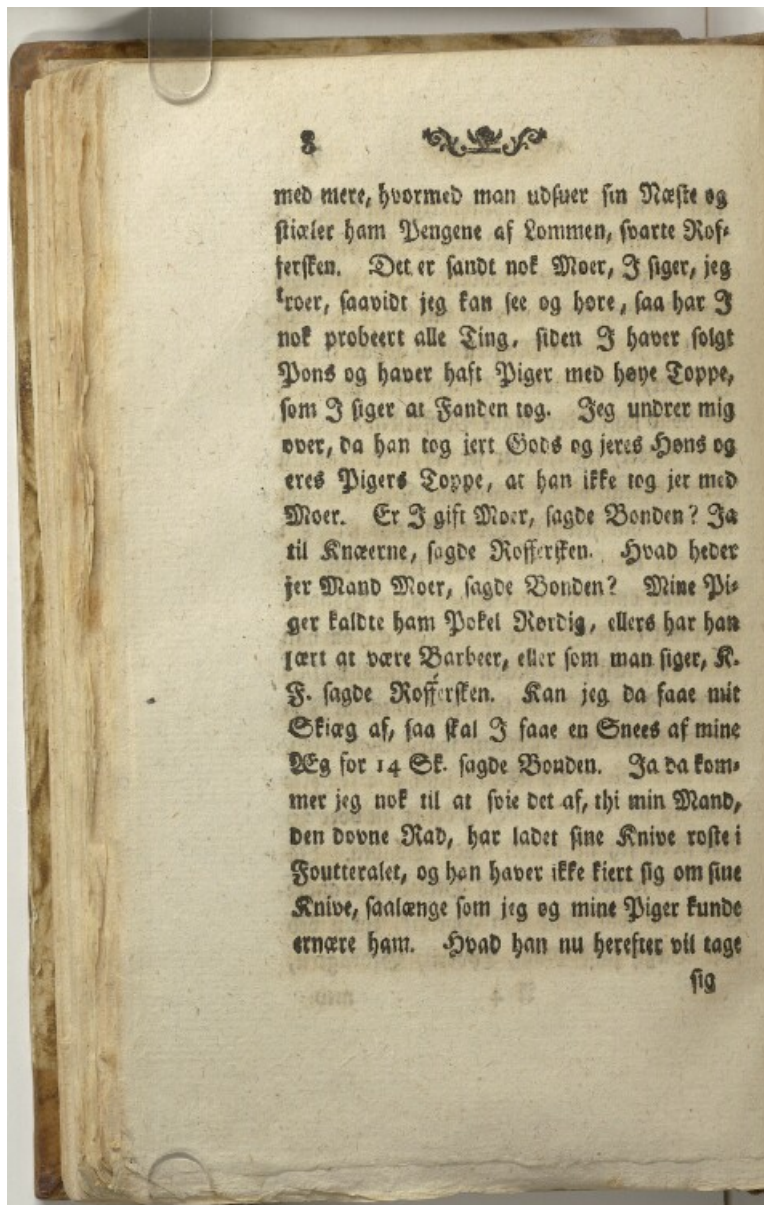 8
med mere, hvormed man udsuer sin Næste og
stiæler ham Pengene af Lommen, svarte Rof-
fersken. Det er sandt nok Moer, I siger, jeg
troer, saavidt jeg kan see og høre, saa har I
nok probeert alle Ting, siden I haver solgt
Pons og haver haft Piger med høye Toppe,
som I siger at Fanden tog. Jeg undrer mig
over, da han tog jert Gods og jeres Høns og
eres Pigers Toppe, at han ikke tog jer med
Moer. Er I gift Moer, sagde Bonden? Ja
til Knæerne, sagde Roffersken. Hvad heder
jer Mand Moer, sagde Bonden? Mine Pi-
ger kaldte ham Pokel Rørdig, ellers har han
lært at være Barbeer, eller som man siger, K.
F. sagde Roffersken. Kan jeg da faae mit
Skiæg af, saa skal I faae en Snees af mine
Æg for 14 Sk. sagde Bonden. Ja da kom-
mer jeg nok til at svie det af, thi min Mand,
den dovne Rad, har ladet sine Knive roste i
Foutteralet, og han haver ikke kiert sig om sine
Knive, saalænge som jeg og mine Piger kunde
ernære ham. Hvad han nu herefter vil tage
sig